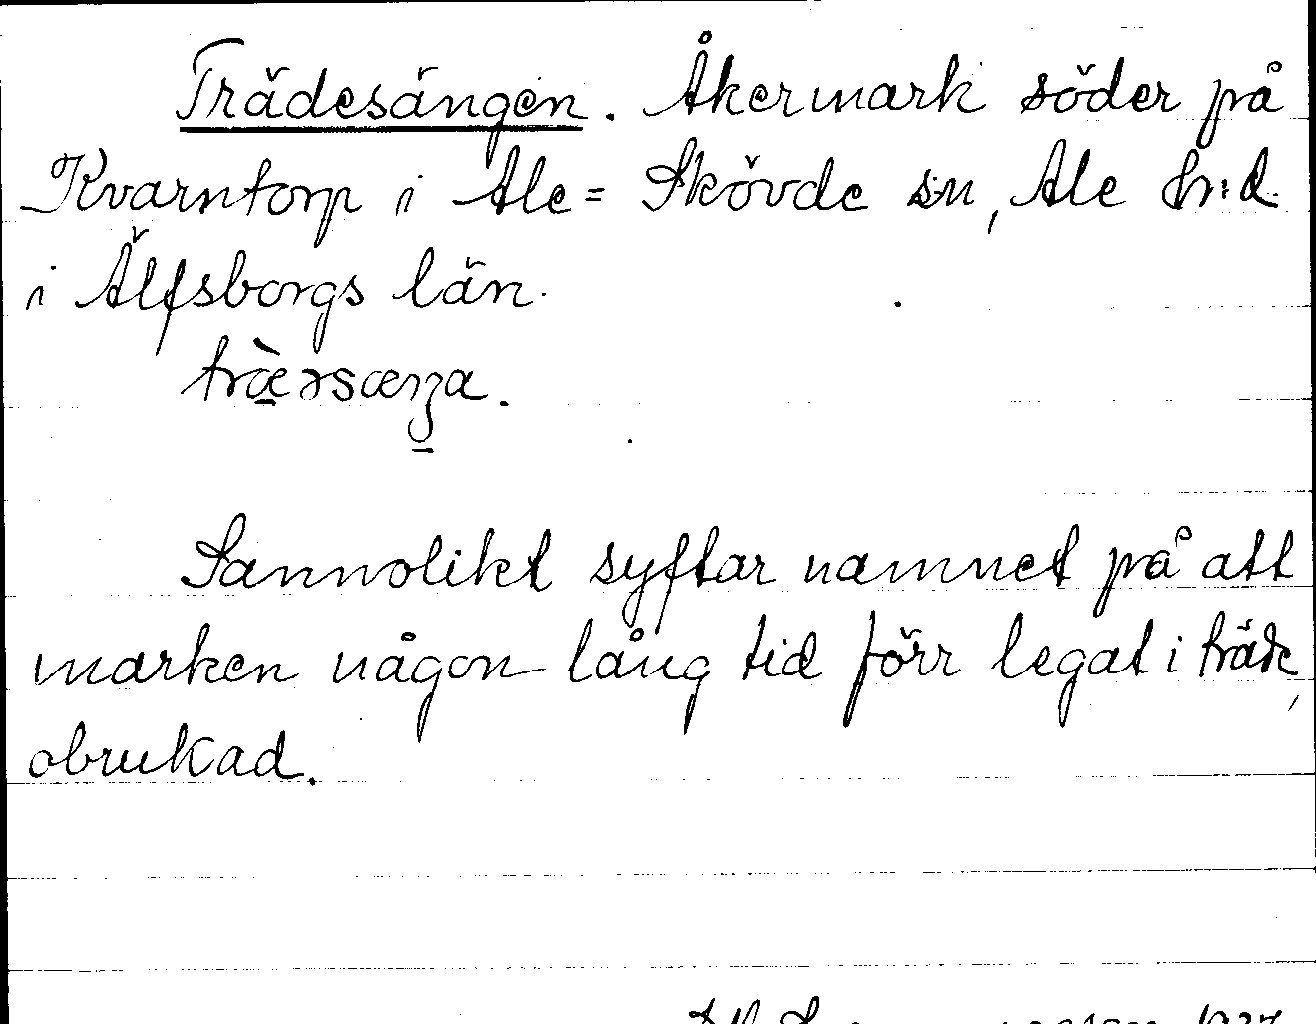 Trädesängen. Åkermark söder på
Kvarntorp i Ale= Skövde sn, Ale h:d
i Älfsborgs län.
Sannolikt syftar namnet på att
marken någon lång tid förr legat i träde,
obrukad.
1937